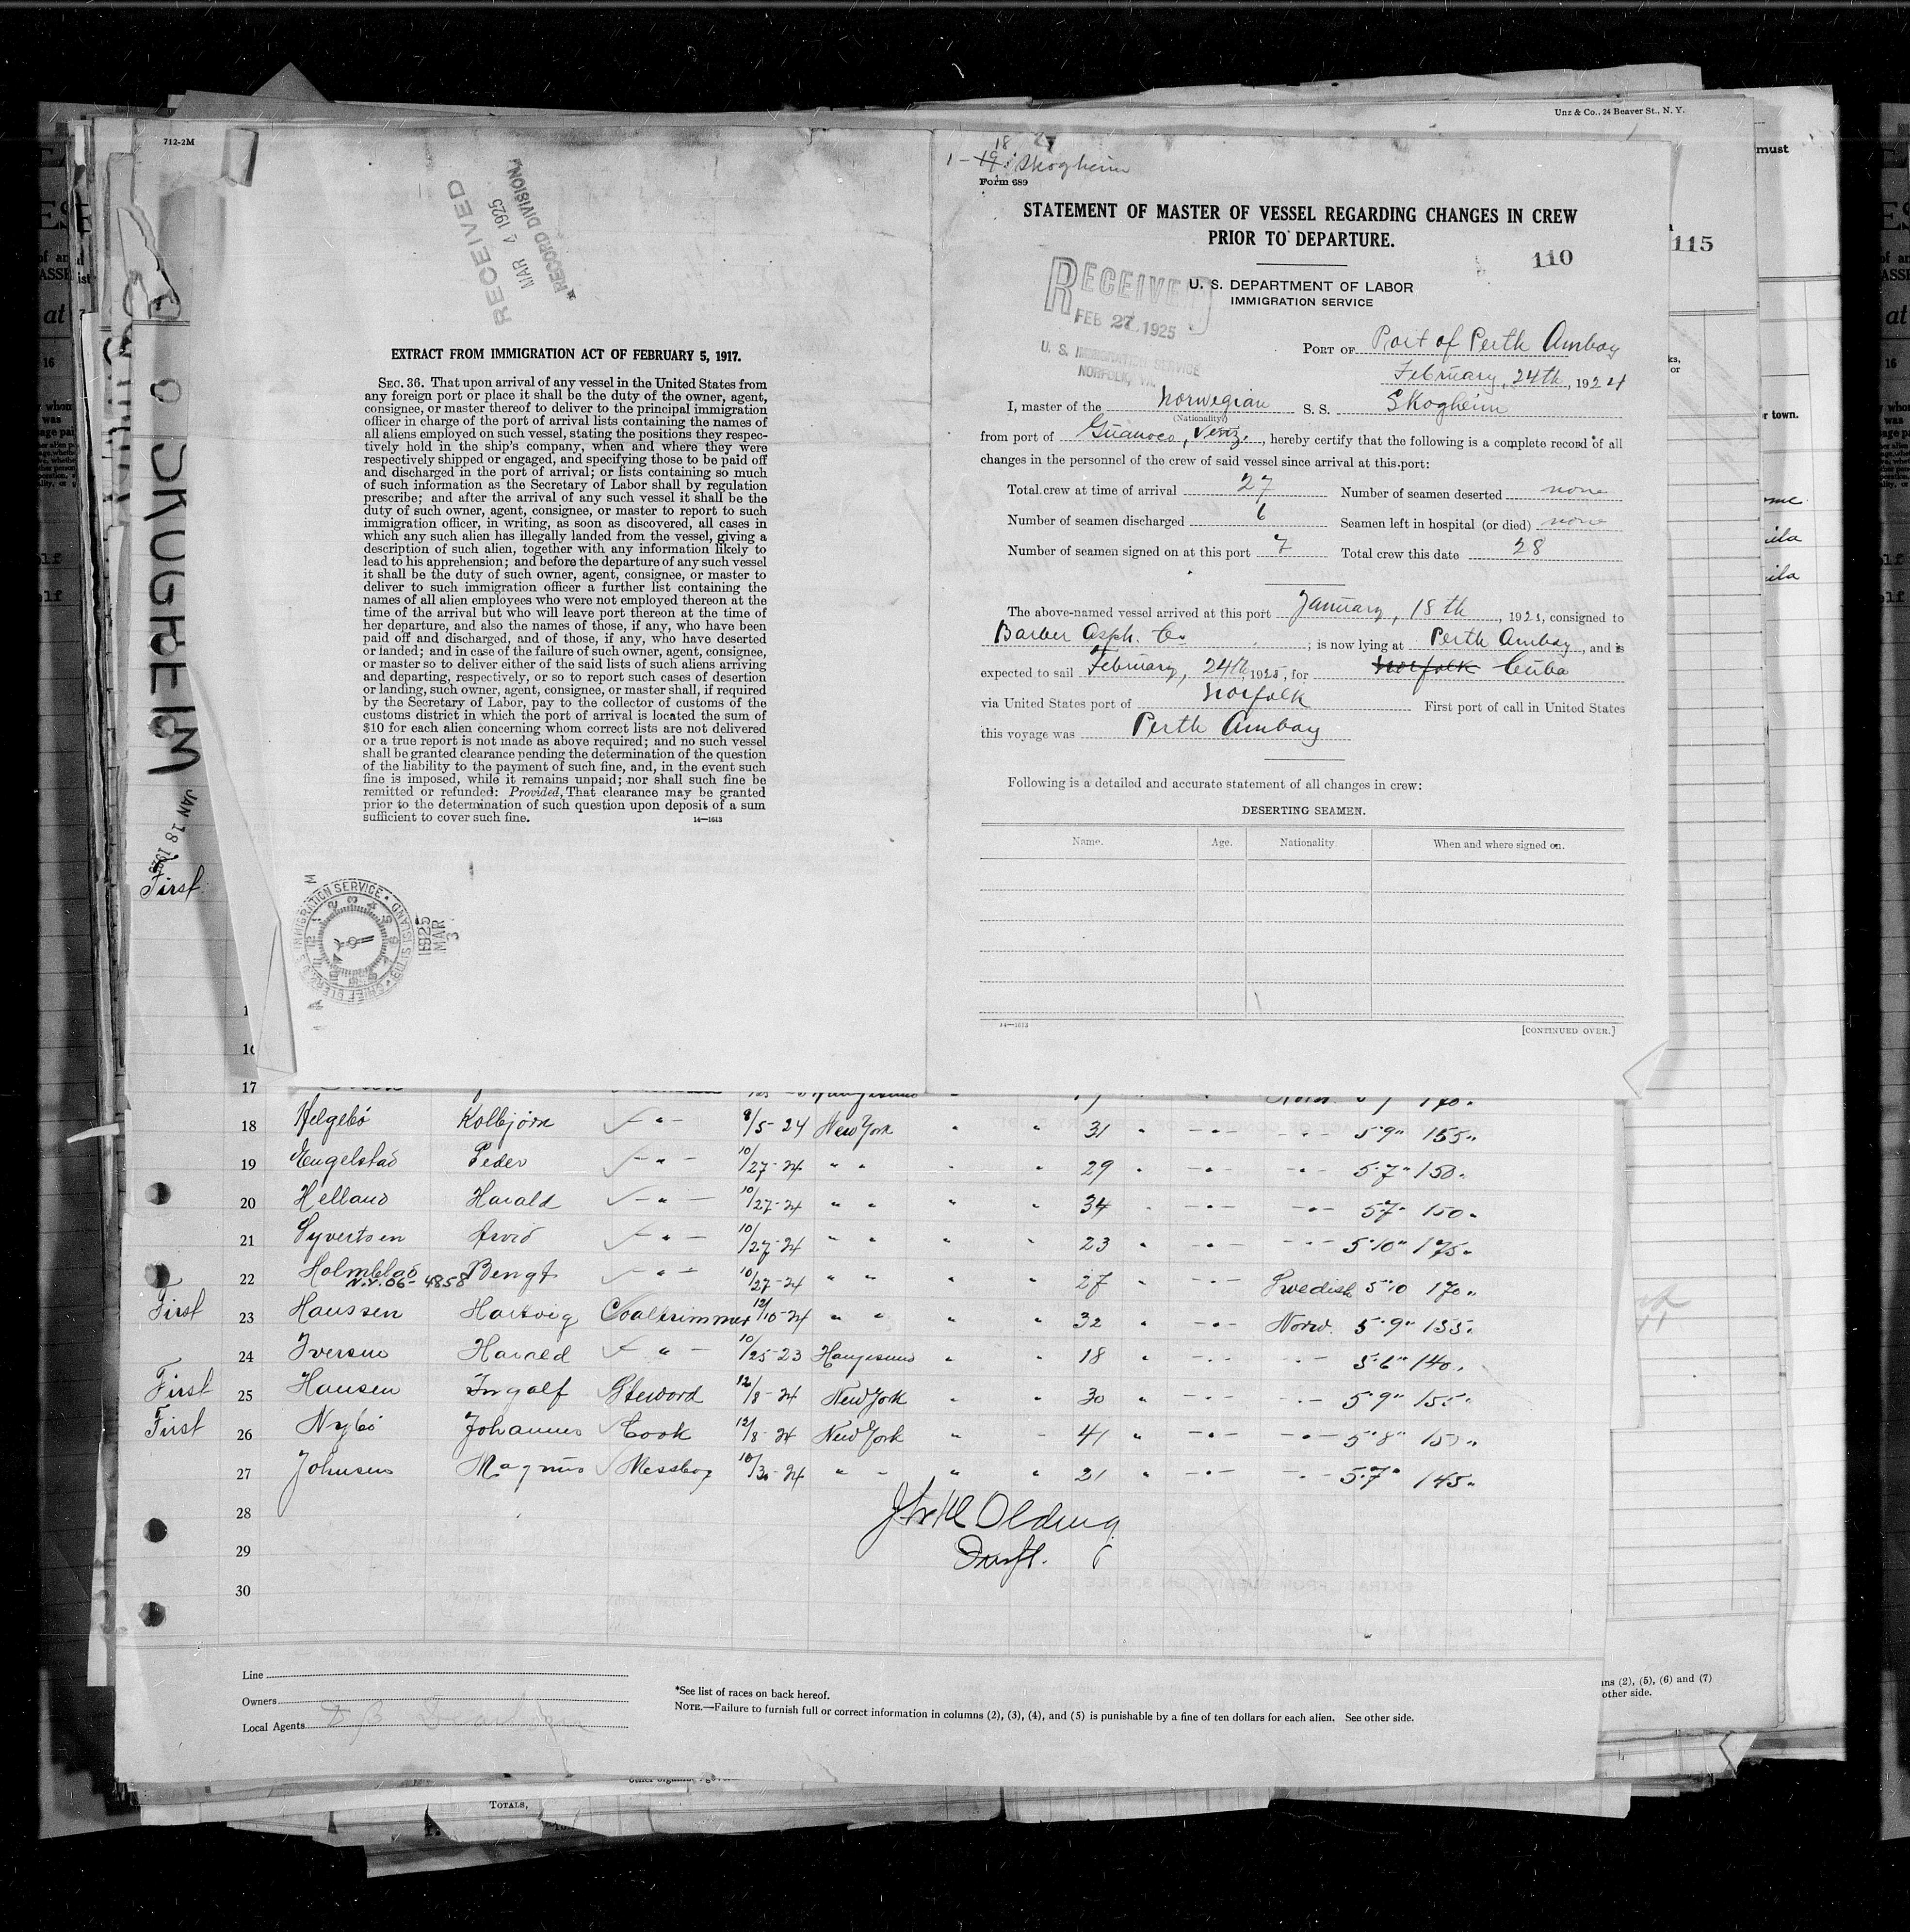 Unz & Co., 24 Beaver St., N. Y.
712-2M
must
115
RECEIVED
MAR 4 1925
RECORD DIVISION
EXTRACT FROM IMMIGRATION ACT OF FEBRUARY 5, 1917.
SEC. 36. That upon arrival of any vessel in the United States from
any foreign port or place it shall be the duty of the owner, agent,
consignee, or master thereof to deliver to the principal immigration
officer in charge of the port of arrival lists containing the names of
all aliens employed on such vessel, stating the positions they respec-
tively hold in the ship's company, when and where they were
respectively shipped or engaged, and specifying those to be paid off
and discharged in the port of arrival; or lists containing so much
of such information as the Secretary of Labor shall by regulation
prescribe; and after the arrival of any such vessel it shall be the
duty of such owner, agent, consignee, or master to report to such
immigration officer, in writing, as soon as discovered, all cases in
which any such alien has illegally landed from the vessel, giving a
description of such alien, together with any information likely to
lead to his apprehension; and before the departure of any such vessel
it shall be the duty of such owner, agent, consignee, or master to
deliver to such immigration officer a further list containing the
names of all alien employees who were not employed thereon at the
time of the arrival but who will leave port thereon at the time of
her departure, and also the names of those, if any, who have been
paid off and discharged, and of those, if any, who have deserted
or landed; and in case of the failure of such owner, agent, consignee,
or master so to deliver either of the said lists of such aliens arriving
and departing, respectively, or so to report such cases of desertion
or landing, such owner, agent, consignee, or master shall, if required
by the Secretary of Labor, pay to the collector of customs of the
customs district in which the port of arrival is located the sum of
$10 for each alien concerning whom correct lists are not delivered
or a true report is not made as above required; and no such vessel
shall be granted clearance pending the determination of the question
of the liability to the payment of such fine, and, in the event such
fine is imposed, while it remains unpaid; nor shall such fine be
remitted or refunded: Provided, That clearance may be granted
prior to the determination of such question upon deposit of a sum
sufficient to cover such fine.
14—1613
SKOGHEIM
JAN 18 1925
First
CHIEF CLERK U. S. IMMIGRATION SERVICE ELLIS ISLAND
1925
MAR
3
18
1 - 19 Skogheim
Form 689
STATEMENT OF MASTER OF VESSEL REGARDING CHANGES IN CREW
PRIOR TO DEPARTURE.
110
RECEIVED
FEB 27 1925
U. S. IMMIGRATION SERVICE
NORFOLK, VA.
U. S. DEPARTMENT OF LABOR
IMMIGRATION SERVICE
PORT OF Port of Perth Amboy
February, 24th, 1924
I, master of the Norwegian S. S. Skogheim
(Nationality)
from port of Guanoco, Venz., hereby certify that the following is a complete record of all
changes in the personnel of the crew of said vessel since arrival at this port:
Total crew at time of arrival 27 Number of seamen deserted none
Number of seamen discharged 6 Seamen left in hospital (or died) none
Number of seamen signed on at this port 7 Total crew this date 28
The above-named vessel arrived at this port January, 18th, 1925, consigned to
Barber Asph. Co ; is now lying at Perth Amboy, and is
expected to sail February, 24th 1925, for Norfolk Cuba
via United States port of Norfolk First port of call in United States
this voyage was Perth Amboy
Following is a detailed and accurate statement of all changes in crew:
DESERTING SEAMEN.
Name. Age. Nationality. When and where signed on.
14—1613
[CONTINUED OVER.]
16
17
18 Helgebö Kolbjörn - " - 9/5-24 New York " " 31 " - " - - " - 5'9" 155"
19 Engelstad Peder - " - 10/27-24 " " " " 29 " - " - - " - 5'7" 150"
20 Helland Harald - " - 10/27-24 " " " " 34 " - " - - " - 5'7" 150"
21 Syvertsen Arvid - " - 10/27-24 " " " " 23 " - " - - " - 5'10" 175"
22 Holmblad Bengt - " - 10/27-24 " " " " 27 " - " - Swedish 5'10 170"
N.Y. 06-4858
First 23 Hanssen Hartvig Coaltrimmer 12/10-24 " " " " 32 " - " - Norw. 5'9" 155"
24 Iversen Harald - " - 10/25-23 Haugesund " " 18 " - " - - " - 5'6" 140"
First 25 Hansen Ingolf Steword 12/8-24 New York " " 30 " - " - - " - 5'9" 155"
First 26 Nybö Johannes Cook 12/8-24 New York " " 41 " - " - - " - 5'8" 155"
27 Johnsen Magnus Messboy 10/30-24 " " " " 21 " - " - - " - 5'7" 145"
28
29
30
Line
Owners
Local Agents
*See list of races on back hereof.
NOTE.—Failure to furnish full or correct information in columns (2), (3), (4), and (5) is punishable by a fine of ten dollars for each alien. See other side.
(2), (5), (6) and (7)
other side.
TOTALS,